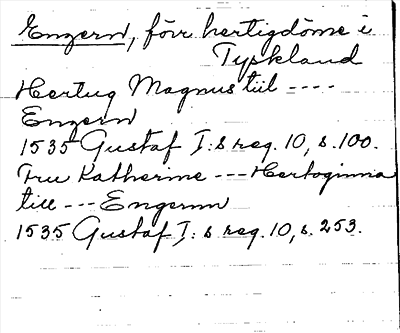 Engern, förr hertigdöme i
Tyskland
Hertug Magnus till ----
Engern
1535 Gustaf I:s reg. 10, s. 100.
Fru Katherine --- Hertoginna
till --- Engernn
1535 Gustaf I:s reg. 10, s. 253.